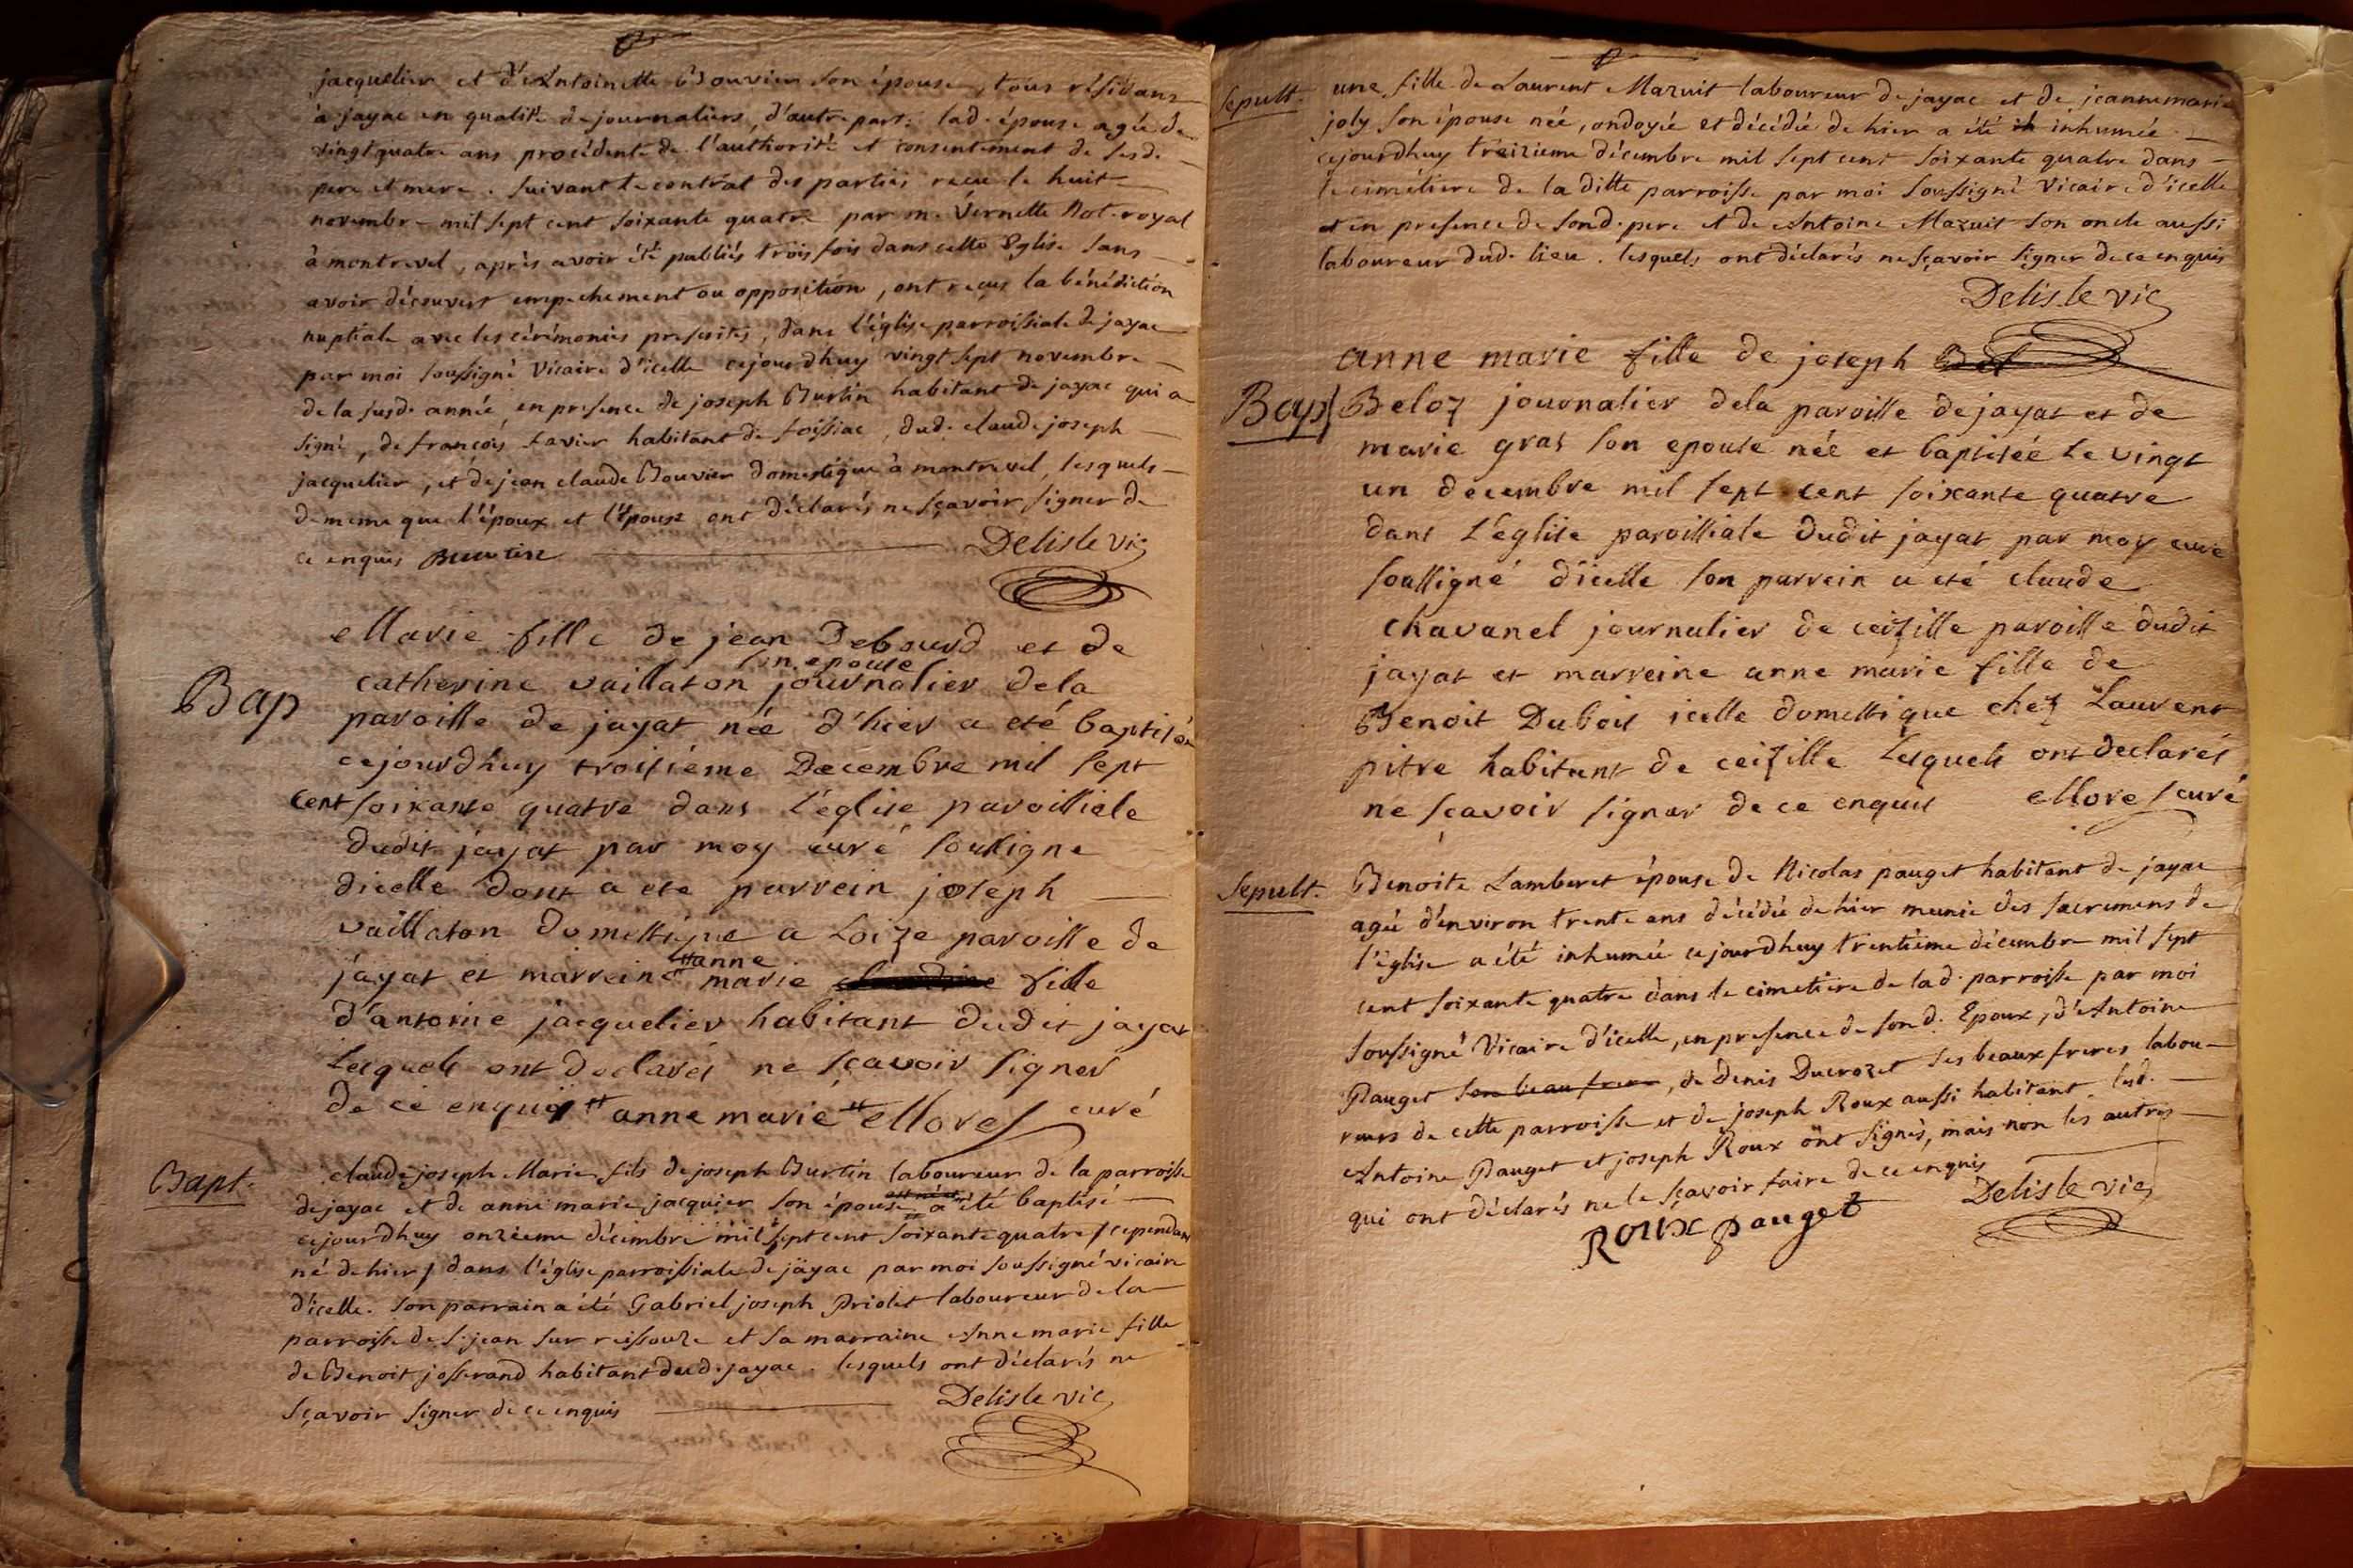 jacquelier et d'Antoinette Bouvier son épouse, tous résidans
à jayac en qualité de journaliers, d'autre part. lad. épouse agée de
vingt quatre ans procédente de l'authorité et consentement de sesd.
pere et mere. suivant le contrat des parties reçu le huit
novembre mil sept cent soixante quatre par m. Vernette Not. royal
à montrevel, après avoir été publiés trois fois dans cette Eglise sans
avoir découvert empechement ou opposition, ont reçus la bénédiction
nuptiale avec les cérémonies prescrites, dans l'église parroissiale de jayac
par moi soussigné Vicaire d'icelle cejourdhuy vingt sept novembre
de la susd. année, en presence de joseph Burtin habitant de jayac qui a
signé, de françois favier habitant de foissiac, dud. claude joseph
jacquelier, et de jean claude Bouvier domestique à montrevel, lesquels
de meme que l'époux et l'épouse ont déclarés ne sçavoir signer de
ce enquis Burtin Delisle vic
Marie fille de jean Debourd et de
son epouse
Bap catherine vaillaton journalier dela
paroisse de jayat née d'hier a eté baptisée
cejourdhuy troisiéme Decembre mil sept
cent soixante quatre dans l'église paroissiele
dudit jayat par moy curé soussigne
dicelle dont a ete parrein joseph
vaillaton domestique a Loize paroisse de
anne
jayat et marreine marie fille
d'antoine jacquelier habitant dudit jayat
Lesquels ont declarés ne sçavoir signer
de ce enquis anne marie Mores curé
Bapt. claude joseph Marie fils de joseph Burtin laboureur de la parroisse
de jayac et de anne marie jacquier son épouse, a été baptisé
cejourdhuy onzieme décembre mil sept cent soixante quatre / cependant
né de hier / dans l'église parroissiale de jayac par moi soussigné vicaire
d'icelle. son parrain a été Gabriel joseph Priolet laboureur de la
parroisse de s. jean sur reissouze et sa marraine Anne marie fille
de Benoit josserand habitant dud. jayac. lesquels ont déclarés ne
sçavoir signer de ce enquis Delisle vic
Sepult. une fille de Laurent Mazuit laboureur de jayac et de jeanne marie
joly son épouse née, ondoyée et décédée de hier a été inhumée
cejourdhuy treizieme décembre mil sept cent soixante quatre dans
le cimétiere de la ditte parroisse par moi soussigné Vicaire d'icelle
et en presence de sond. pere et de Antoine Mazuit son oncle aussi
laboureur dud. lieu. lesquels ont déclarés ne sçavoir signer de ce enquis
Delisle vic
anne marie fille de joseph
Bap Beloz journalier dela paroisse de jayat et de
marie gras son epouse née et baptisée Le vingt
un decembre mil sept cent soixante quatre
dans L'eglise paroissiale dudit jayat par moy curé
soussigné d'icelle son parrein a eté claude
chavanel journalier de ceizille paroisse dudit
jayat et marreine anne marie fille de
Benoit Dubois icelle domestique chez Laurent
pitre habitant de ceizille Lesquels ont declarés
ne sçavoir signer de ce enquis Mores curé
Sepult. Benoite Lamberet épouse de Nicolas pauget habitant de jayac
agée d'environ trente ans décédée de hier munie des sacremens de
l'église a été inhumée cejourdhuy trentième décembre mil sept
cent soixante quatre dans le cimetiere de lad. parroisse par moi
soussigné Vicaire d'icelle, en presence de sond. Epoux, d'Antoine
Pauget son beau frere, de Denis Ducrozet ses beaux freres labou-
reurs de cette parroisse et de joseph Roux aussi habitant lesd.
Antoine Pauget et joseph Roux ont signés, mais non les autres
qui ont déclarés ne le sçavoir faire de ce enquis
Roux pauget Delisle vic